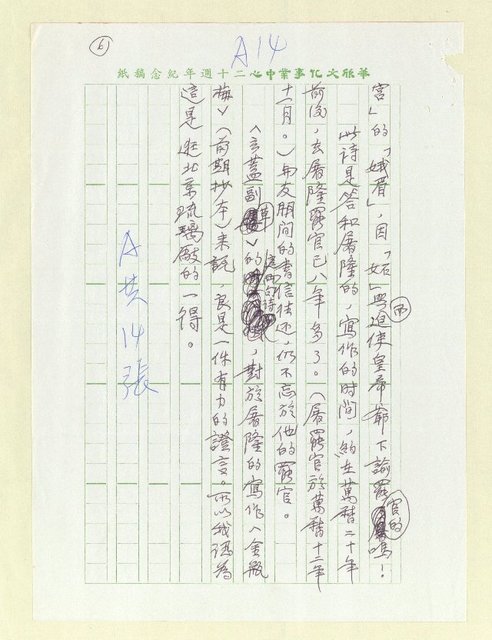 6
A14
華脈文化事業中心二十週年紀念稿紙
宮」的「娥眉」,因「妬」而迫使皇帝爺下諭罷官的嗚!
此詩是答和屠隆的,寫作的時间,約在萬曆二十年
前後,去屠隆罷官已八年多了。(屠罷官於萬曆十二年
十一月。)與友朋间的書信往还,仍不忘於他的罷官。
《玄蓋副草》的這两句詩,對於屠隆的寫作《金瓶
梅》(前期抄本)来說,良是一件有力的證言。所以我認為
這是逛北京琉璃廠的一得。
A共14張